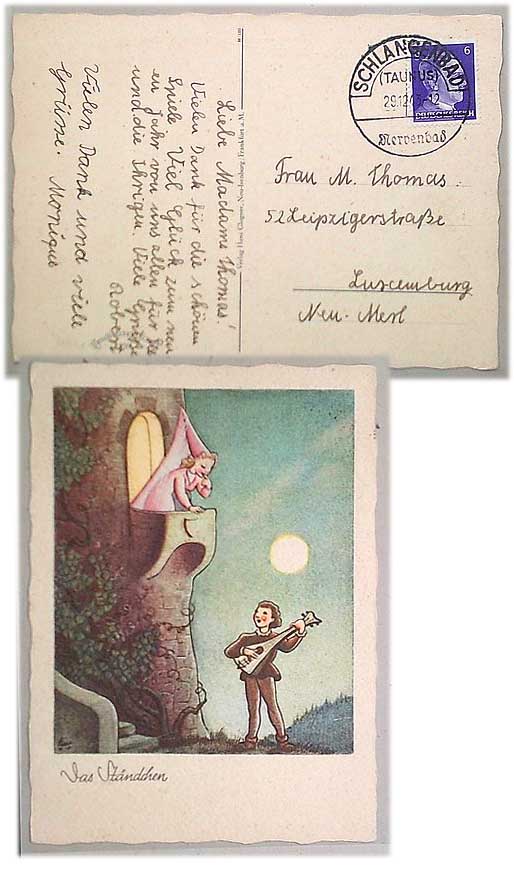 Liebe Madame Thomas!
Vielen Dank für die schönen
Spiele. Viel Glück zum neu
en Jahr von uns allen für Sie
und die Ihrigen. Viele Grüsse
Robert
Vielen Dank und viele
Grüsse. Monique
Frankfurt a. M.
SCHLANGENBAD
(TAUNUS)
Nervenbad
6
DEUTSCHES REICH
Frau M. Thomas
52 Leipzigerstraße
Luxemburg
Neu-Merl
Das Ständchen